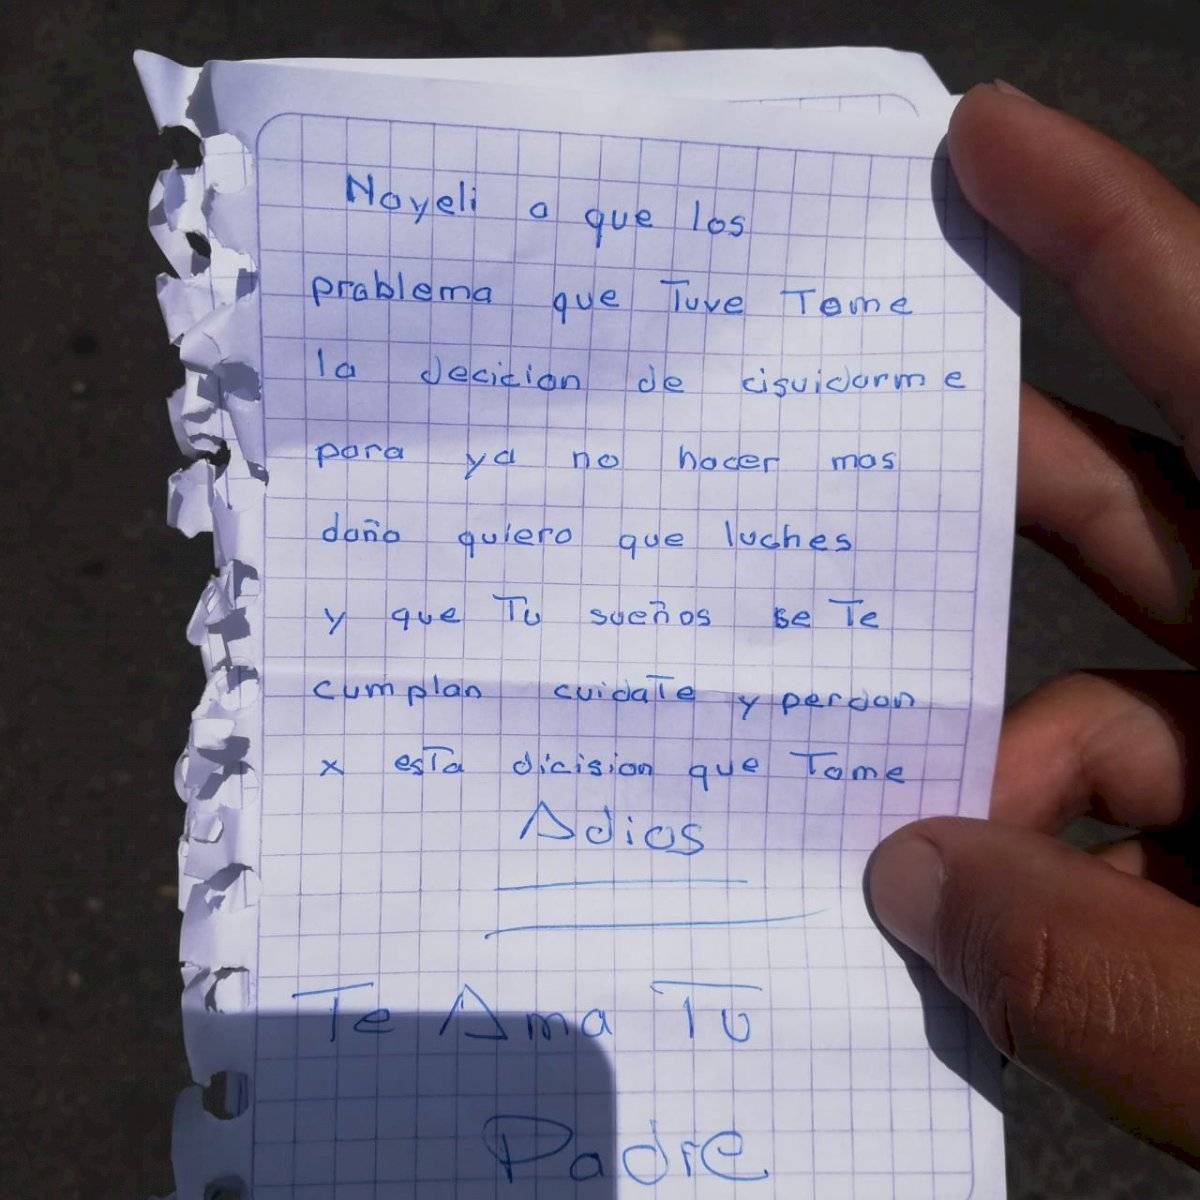 Nayeli a que los
problema que Tuve Tome
la decician de cisuidarme
para ya no hacer mas
daño quiero que luches
y que Tu sueños se Te
cumplan cuidaTe y perdon
x esTa dicision que Tome
Adios
Te Ama Tu
Padre